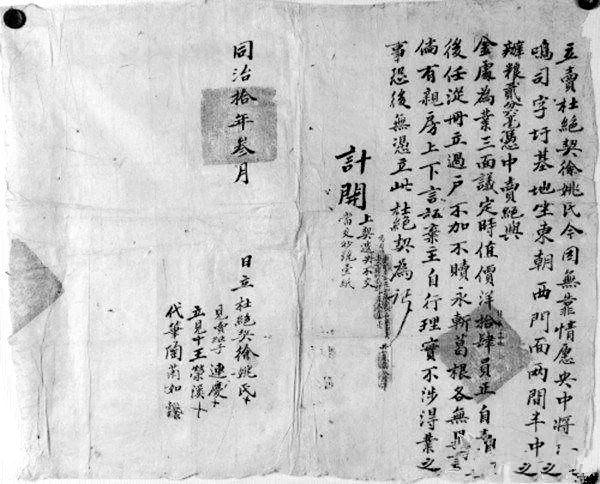 立賣杜絕契徐姚氏今因無靠情愿央中將
鳴司字圩基地坐東朝西門面兩間半中之
辦粮貳分毫憑中賣絕與
金處為業三面議定時值價洋拾肆員正自賣
後任從冊立過戶不加不贖永斬葛根各無異言
倘有親房上下言話棄主自行理實不涉得業之
事恐後無憑立此杜絕契為証
計開
上契遺失不交
當交抄統壹紙
同治拾年叁月
日立杜絕契徐姚氏十
見賣 連慶十
立見中王榮漢十
代筆陶蘭如